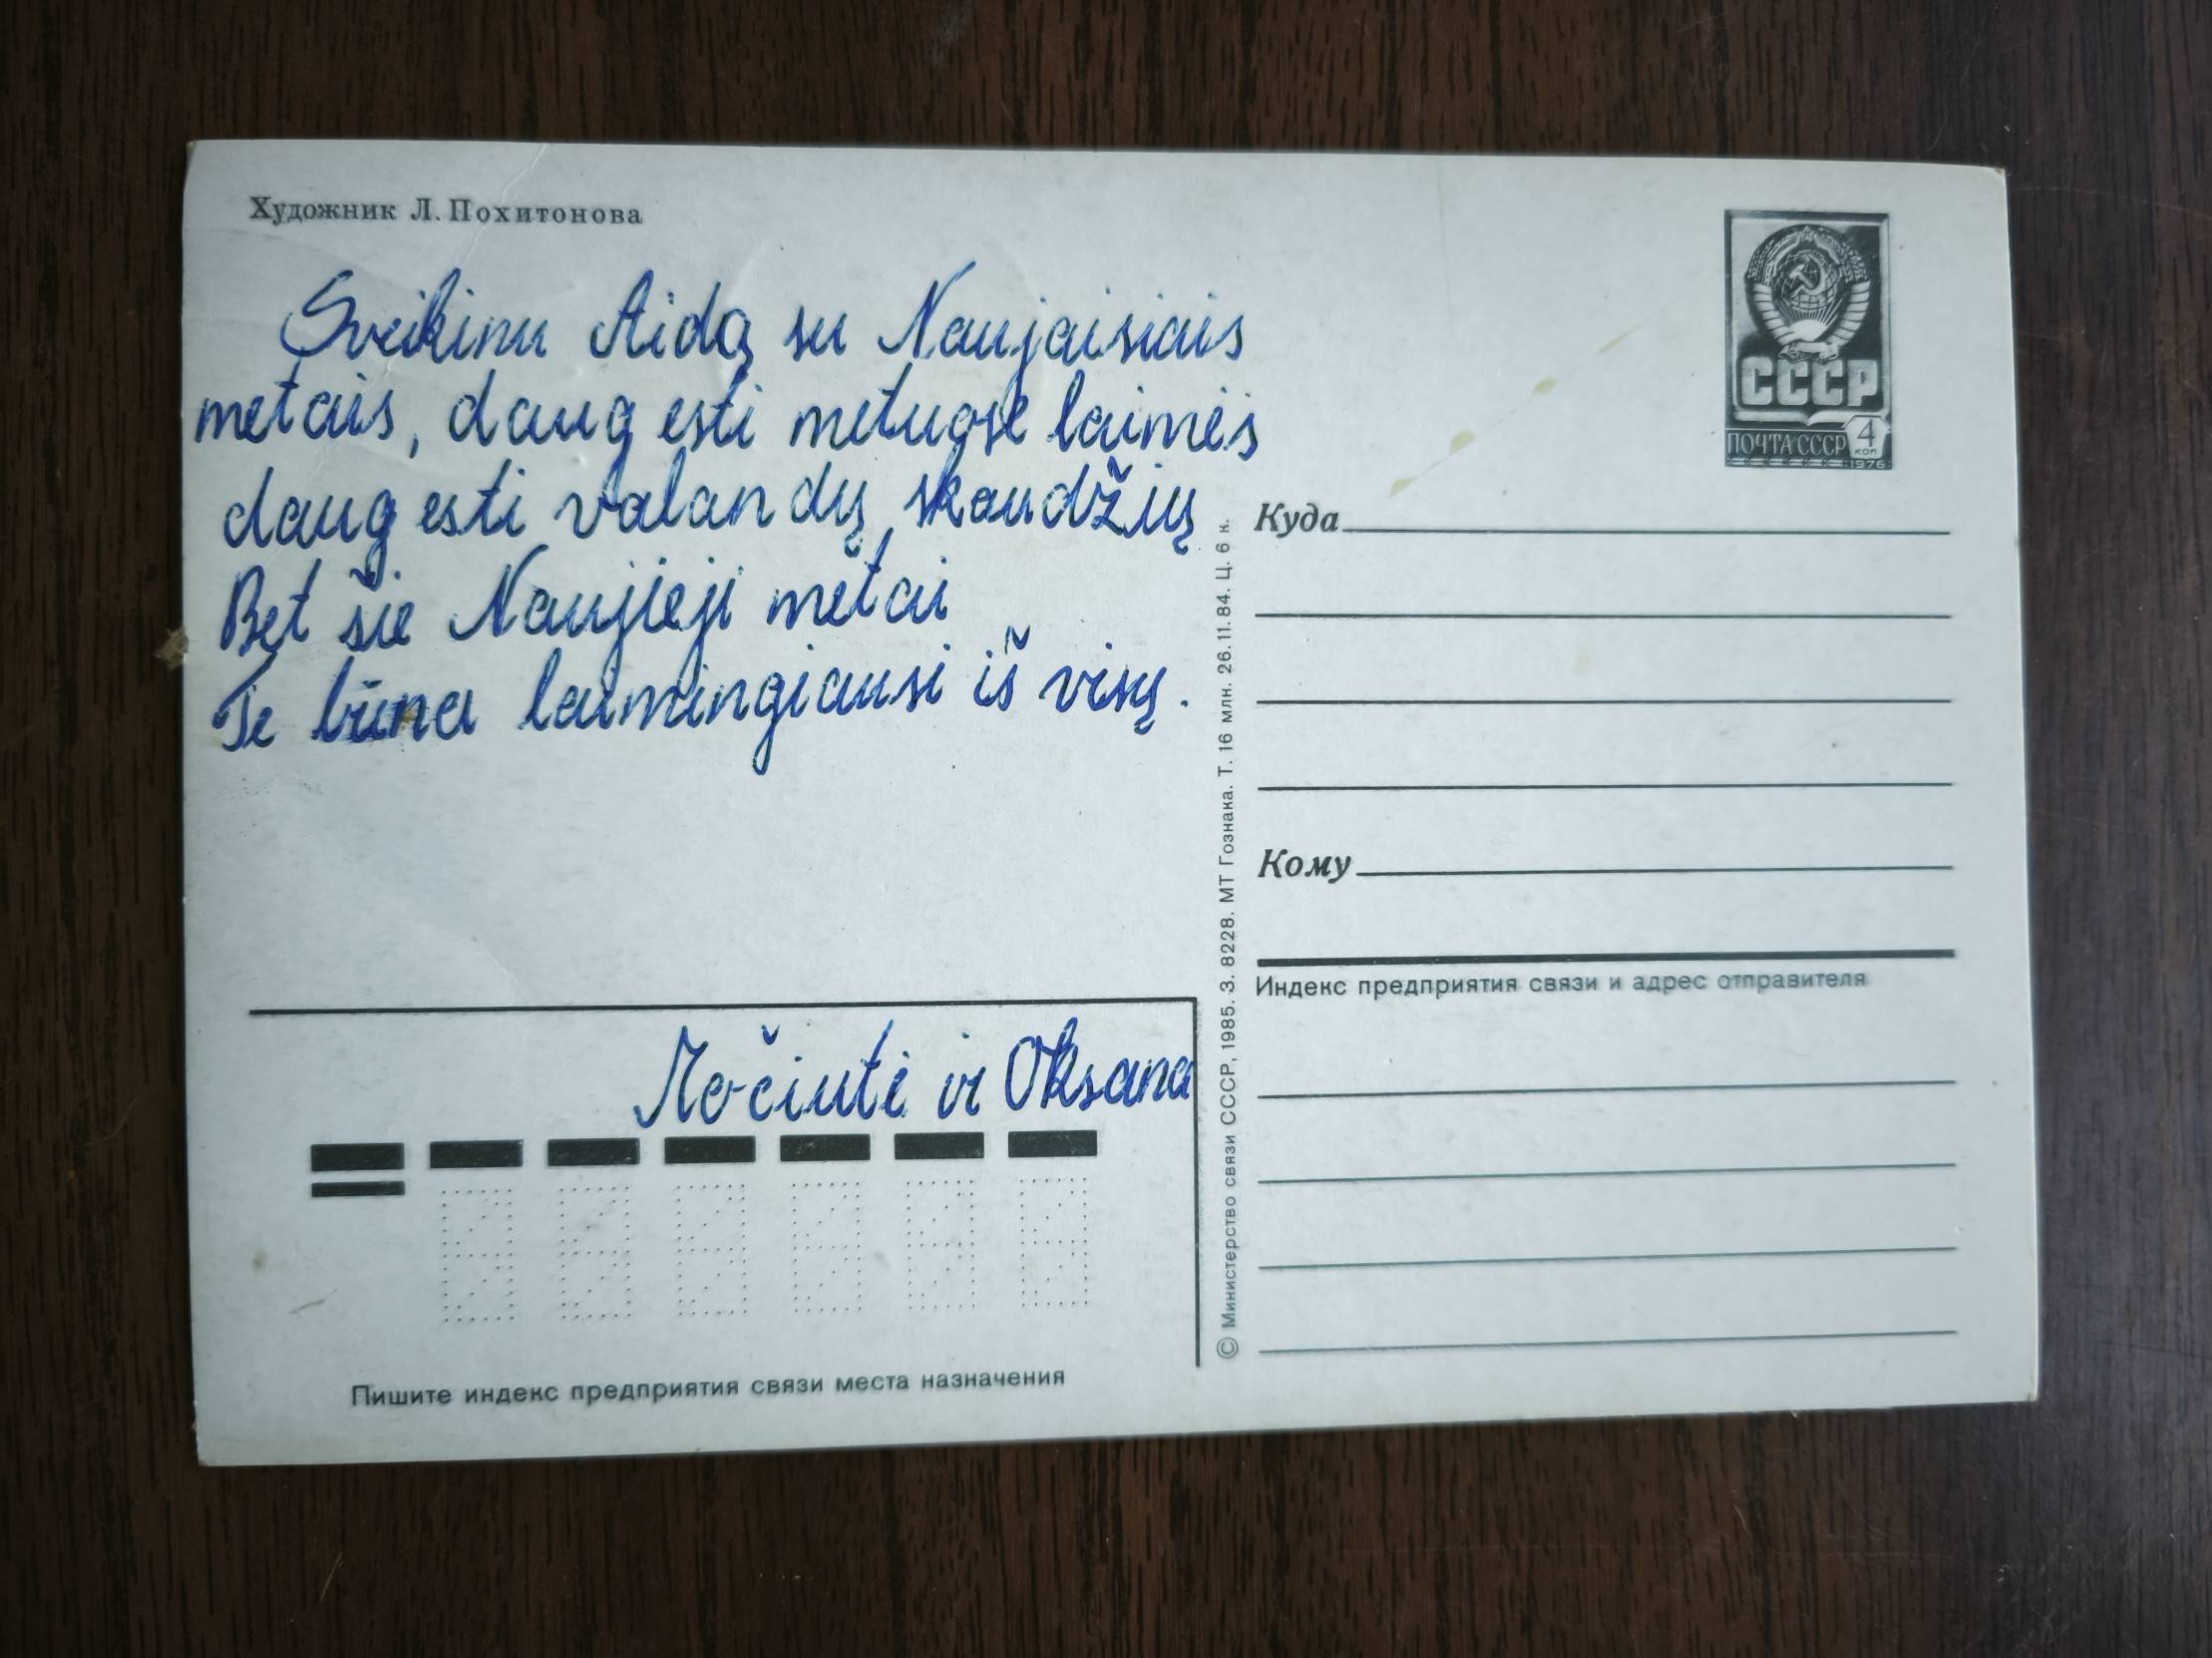 Художник Л. Похитонова
Sveikinu Aidą su Naujaisiais
metais, daug esti metuose laimės
daug esti valandų skaudžių
Bet šie Naujieji metai
Te būna laimingiausi iš visų.
Močiutė ir Oksana
Пишите индекс предприятия связи места назначения
© Министерство связи СССР, 1985. З. 8228. МТ Гознака. Т. 16 млн. 26.11.84. Ц. 6 к.
СССР
ПОЧТА СССР 4
КОП
1976
Куда
Кому
Индекс предприятия связи и адрес отправителя